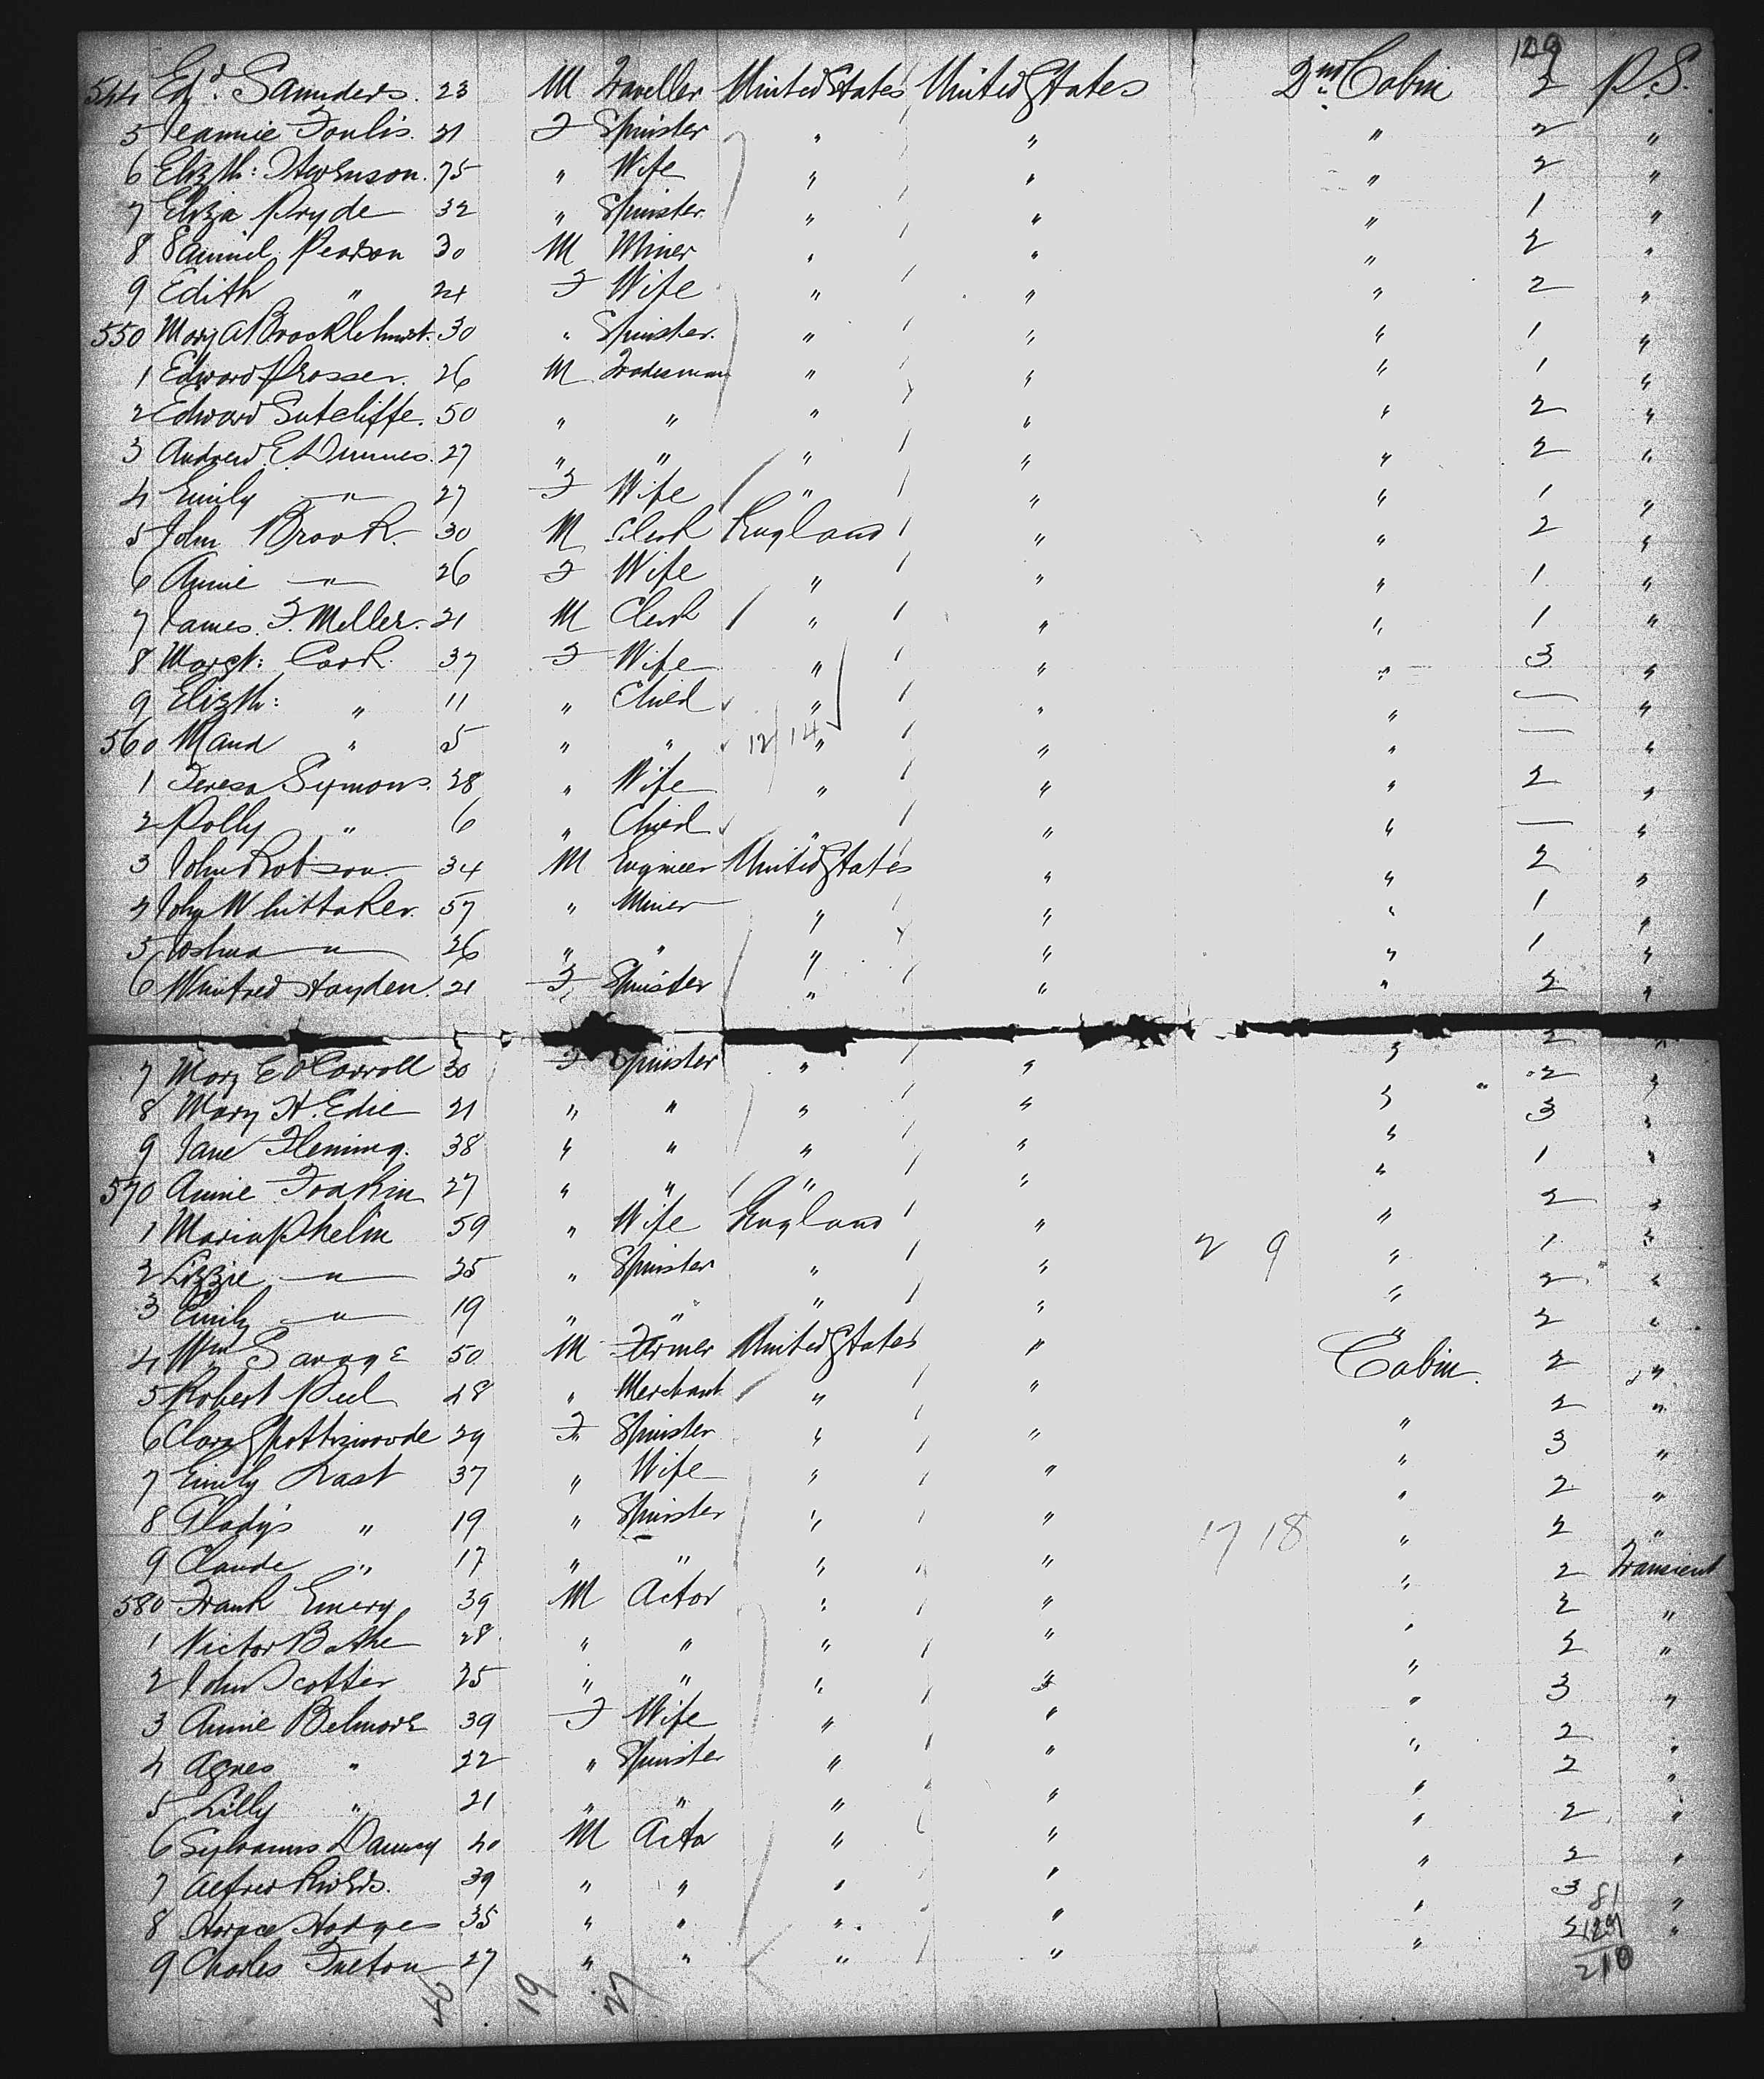 129
544 Ed. Saunders. 23 M Traveller United States United States 2nd Cabin 2 P.S.
5 Jeannie Foulis. 21 F Spinster " " " 2 "
6 Elizth: Stevenson. 25 " Wife " " " 2 "
7 Eliza Pryde 32 " Spinster. " " " 1 "
8 Samuel Pearson 30 M Miner " " " 2 "
9 Edith " 24 F Wife " " " 2 "
550 Mary A Brocklehurst. 30 " Spinster. " " " 1 "
1 Edward Prosser. 26 M Tradesman " " " 1 "
2 Edward Sutcliffe. 50 " " " " " 2 "
3 Andrew E. 27 " " " " " 2 "
4 Emily " 27 F Wife " " " 1 "
5 John Brook. 30 M Clerk England " " 2 "
6 Annie " 26 F Wife " " " 1 "
7 James F. Meller. 21 M Clerk " " " 1 "
8 Margt: Cook. 37 F Wife " " " 3 "
9 Elizth: " 11 " Child " " " — "
560 Maud " 5 " " 12 14 " " " — "
1 Teresa Symons. 28 " Wife " " " 2 "
2 Polly " 6 " Child " " " — "
3 John Robson. 34 M Engineer United States " " 2 "
4 John Whittaker. 57 " Miner " " " 1 "
5 Joshua " 26 " " " " " 1 "
6 Winifred Hayden. 21 F Spinster " " " 2 "
7 Mary E O'Carroll 30 F Spinster " " " 2 "
8 Mary H. Edie 21 " " " " " 2 "
9 Jane Fleming. 38 " " " " " 3 "
570 Annie 27 " " " " " 1 "
1 Maria Phelin 59 " Wife England " " 2 "
2 Lizzie " 25 " Spinster " " 2 9 " 1 "
3 Emily " 19 " " " " " 2 "
4 Wm Savage 50 M Farmer United States " " 2 "
5 Robert Peel 28 " Merchant " " Cabin. 2 "
6 Clara Spottiswoode 29 F Spinster " " " 2 "
7 Emily Last 37 " Wife " " " 3 "
8 Gladys " 19 " Spinster " " " 2 "
9 Claude " 17 " " " " 17 18 " 2 "
580 Frank Emery 39 M Actor " " " 2 Transient
1 Victor Bathe 28 " " " " " 2 "
2 John Scotter 25 " " " " " 2 "
3 Annie Belmore 39 F Wife " " " 3 "
4 Agnes " 22 " Spinster " " " 2 "
5 Lilly " 21 " " " " " 2 "
6 40 M Actor " " " 2 "
7 Alfred 39 " " " " " 2 "
8 Horace Hodges 35 " " " " " 3 "
9 Charles 27 " " " " " 2 "
81
129
210
19 27